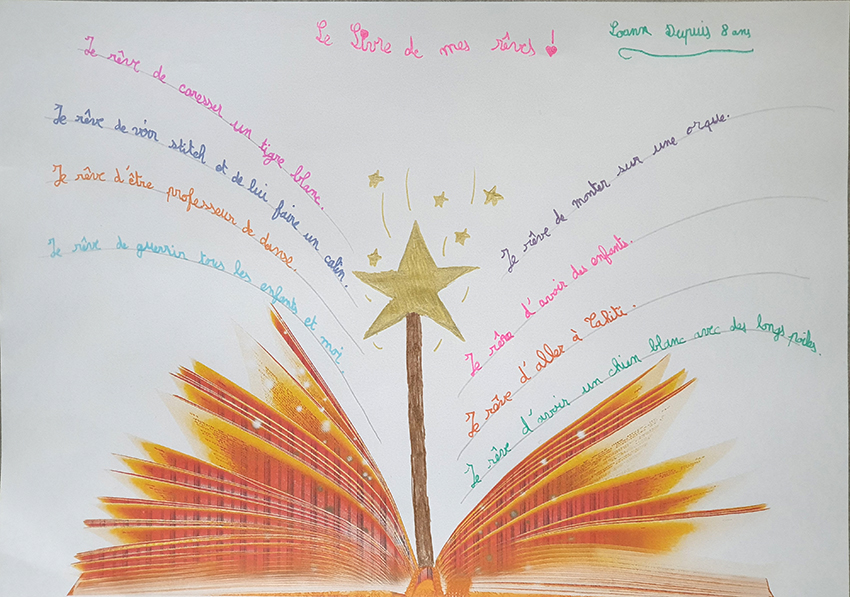 Le Livre de mes rêves !
Loann Dupuis 8 ans
Je rêve de caresser un tigre blanc.
Je rêve de voir stitch et de lui faire un calin.
Je rêve d'être professeur de danse.
Je rêve de guerrir tous les enfants et moi.
Je rêve de monter sur une orque.
Je rêve d'avoir des enfants.
Je rêve d'aller à Tahiti.
Je rêve d'avoir un chien blanc avec des longs poiles.